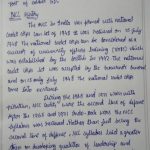 Part of ... 
NCC History
The NCC in India was formed with national
cadet corps act of 1948 it was raised on 15 July
1948 The national cadet corps can be considered as a
succesor of university officers training (UOTC) which
was established by the british in 1942 The national
cadet corps act was accepted by the Governor General
and on 15 July 1948 the national cadet corps
came into existence
During the 1965 and 1971 wars with
pakistan, NCC cadets were the second line of defence
After the 1965 and 1971 Indo-pak wars the NCC
syllabus was revised rather than just being the
second line of defence, NCC syllabus laid a greater
stress on developing qualities of leadership and